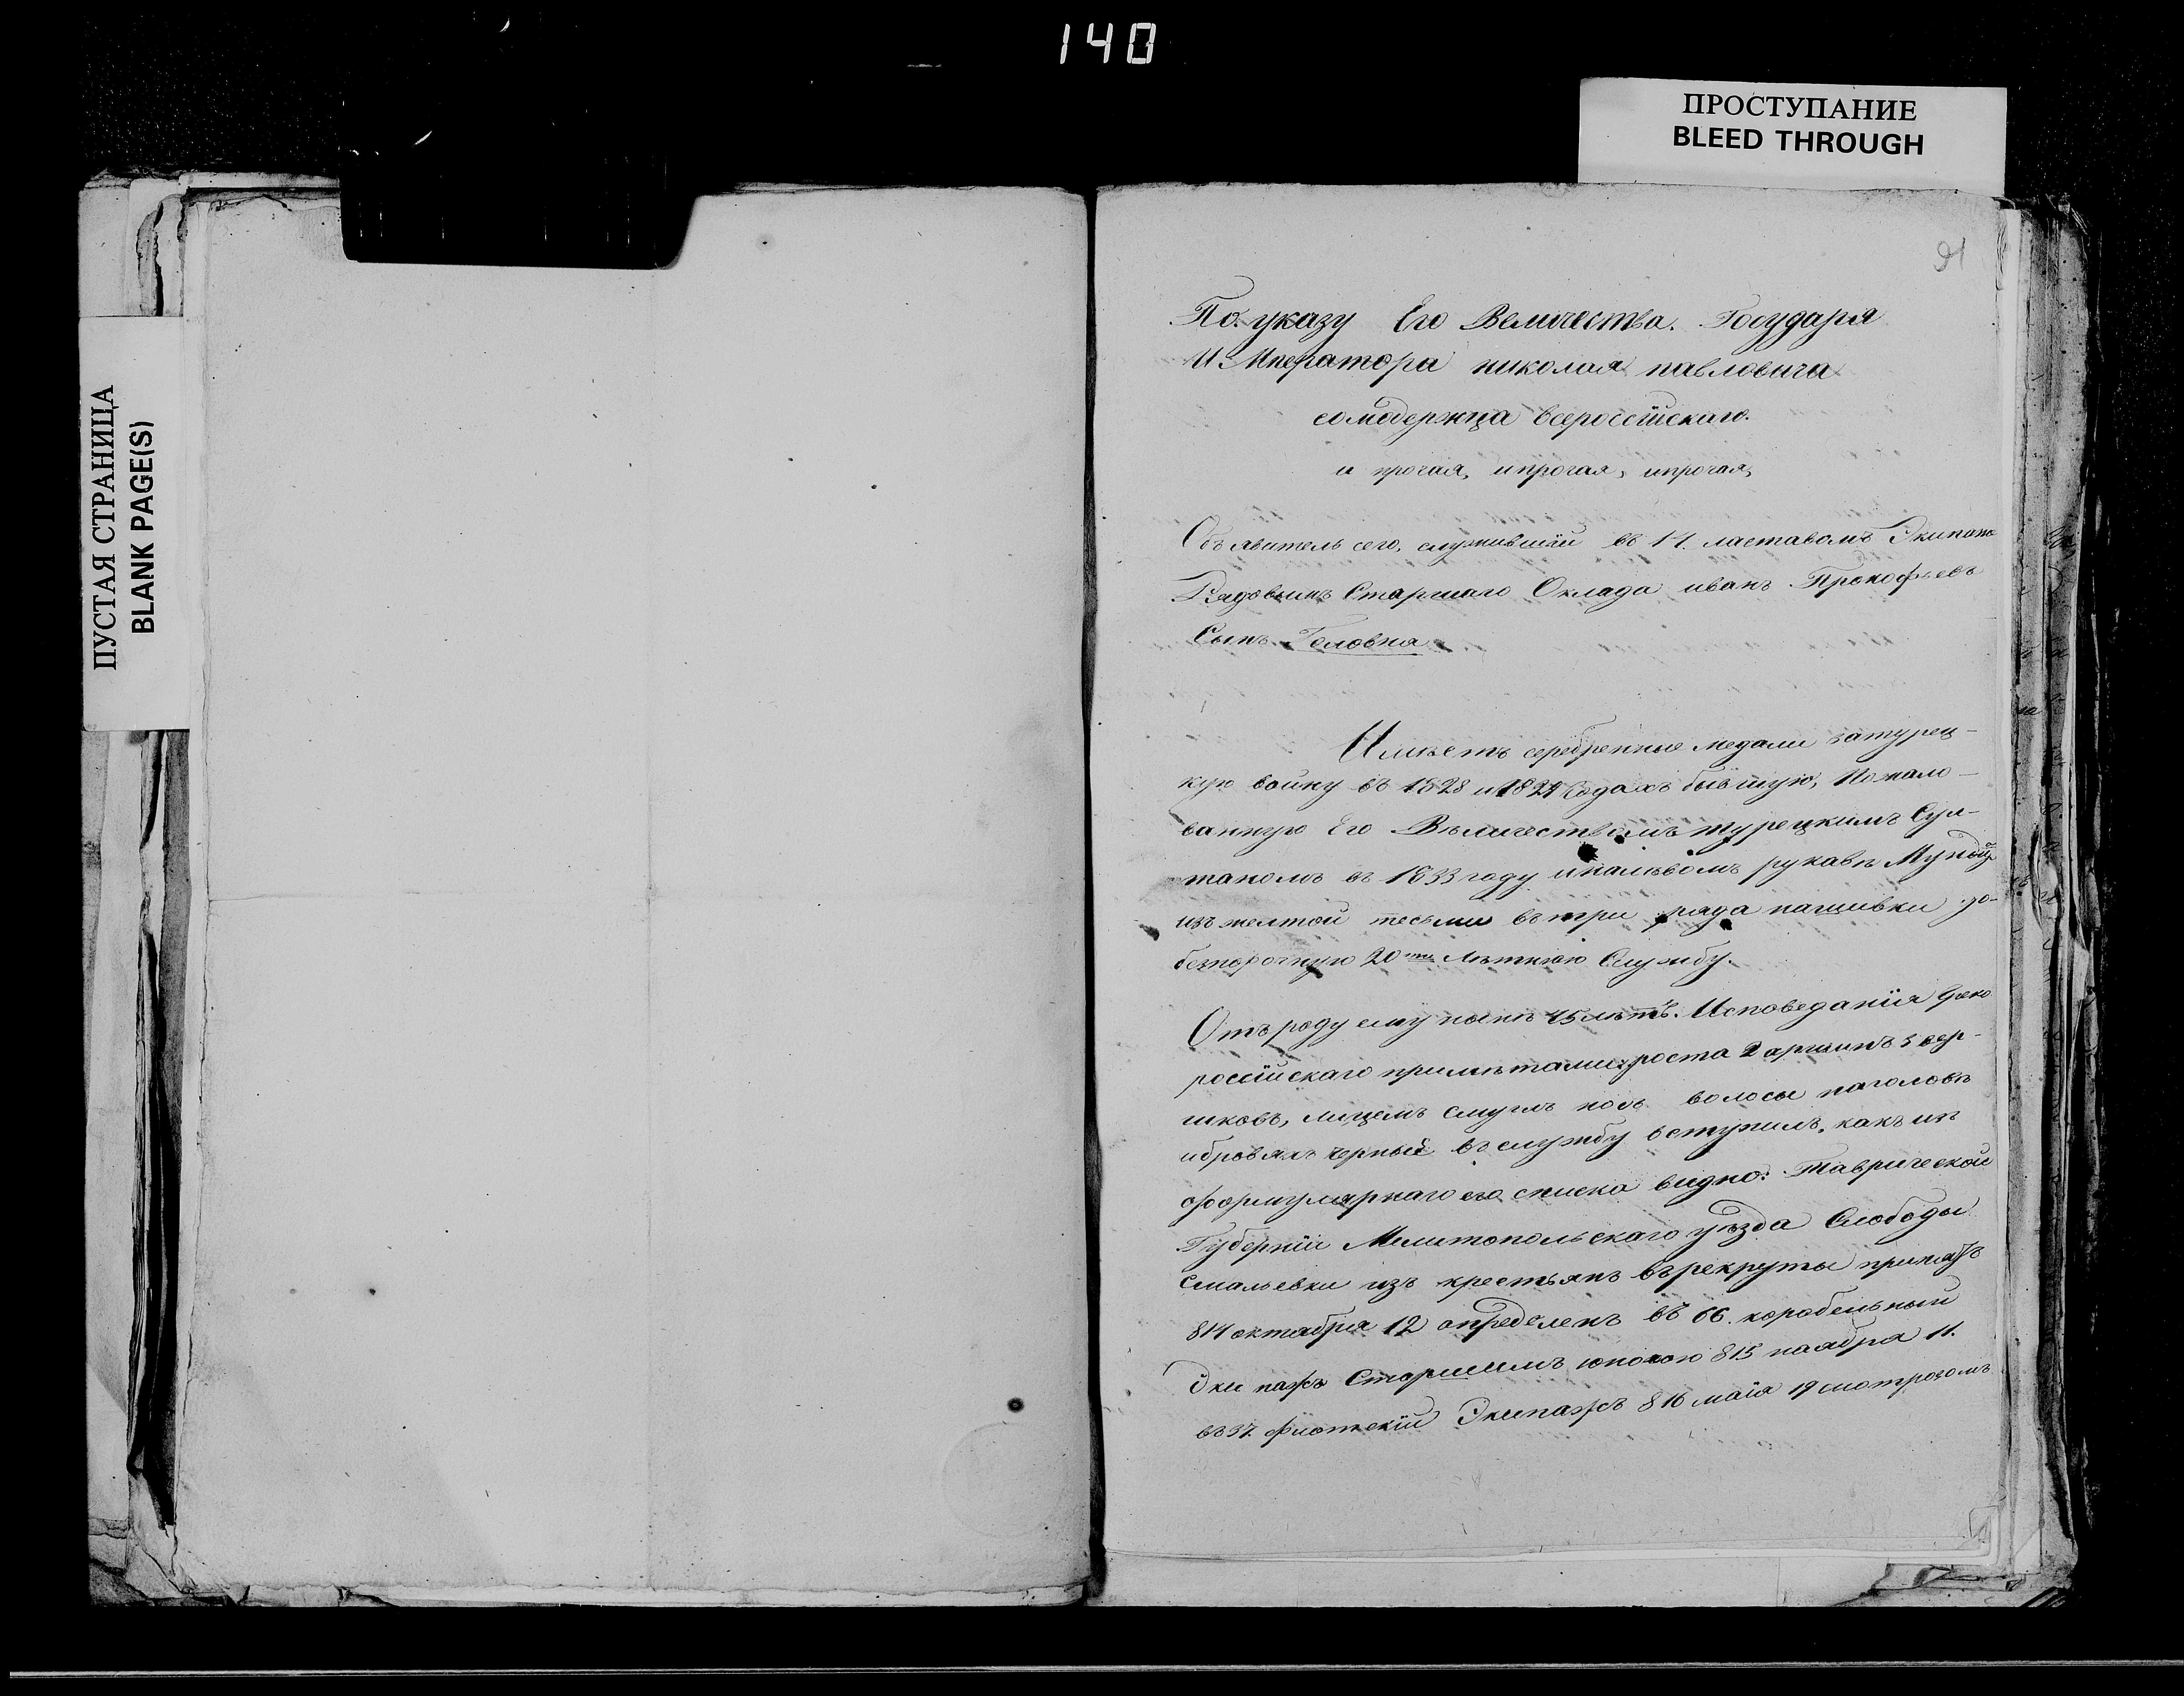 140
ПРОСТУПАНИЕ
BLEED THROUGH
ПУСТАЯ СТРАНИЦА
BLANK PAGE(S)
91
По указу Его Величества. Государя
Императора николая павловича
самодержца всероссійскаго.
и прочая, ипрочая, ипрочая,
Объявитель сего, служившій въ 14. ластавомъ Экипаже
Рядовымъ Старшаго Оклада иванъ Прокофьевъ
Сынъ Головня
Имѣетъ серебренные медали затурец-
кую войну въ 1828 и 1829 годахъ бывшую, Пожало-
ванную Его Величествомъ турецкимъ Сул-
таномъ въ 1833 году иналѣвомъ рукавѣ Мундира
изъ желтой тесьми въ три ряда нашивки за
безпорочную 20ти Лѣтнюю Службу.
Отъ роду ему нынѣ 45 лѣтъ. Исповеданія Греко
россійскаго примѣтами: роста 2 аршинъ 5 вер-
шковъ, лицемъ смуглъ волосы наголовѣ
ибровяхъ черные въ службу вступилъ, какъ изъ
формулярнаго его списка видно: Таврической
Губерніи Мелитопольскаго уѣзда Слободы
из крестьянъ въ рекруты принятъ
814 октября 12 определенъ въ 66. корабельный
Экипажъ Старшимъ юнгою 815 ноября 11.
въ 37. флотскій Экипажъ 816 маія 19 матрозомъ